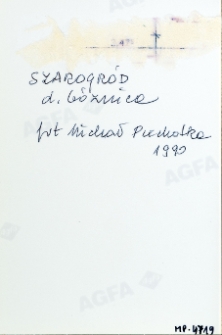 SZAROGRÓD
d. bóżnica
fot Michał Piechotka
1990
MP-4719